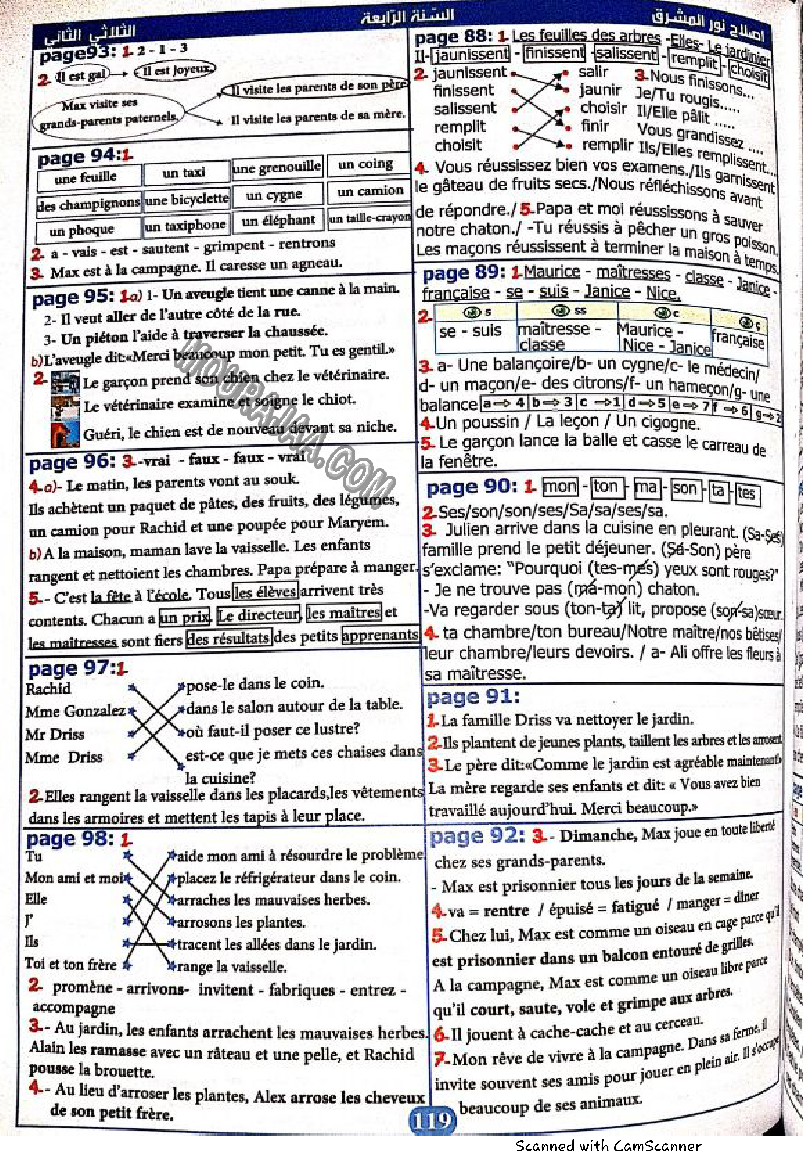 اصلاح نور المشرق
السنة الرابعة
الثلاثي الثاني
page93: 1- 2 - 1 - 3
2- Il est gai Il est joyeux
Max visite ses grands-parents paternels.
Il visite les parents de son père
Il visite les parents de sa mère.
page 94:1-
une feuille un taxi une grenouille un coing
des champignons une bicyclette un cygne un camion
un phoque un taxiphone un éléphant un taille-crayon
2- a - vais - est - sautent - grimpent - rentrons
3- Max est à la campagne. Il caresse un agneau.
page 95: 1-a) 1- Un aveugle tient une canne à la main.
2- Il veut aller de l'autre côté de la rue.
3- Un piéton l'aide à traverser la chaussée.
b)L'aveugle dit:«Merci beaucoup mon petit. Tu es gentil.»
2- Le garçon prend son chien chez le vétérinaire.
Le vétérinaire examine et soigne le chiot.
Guéri, le chien est de nouveau devant sa niche.
page 96: 3--vrai - faux - faux - vrai
4-a)- Le matin, les parents vont au souk.
Ils achètent un paquet de pâtes, des fruits, des légumes,
un camion pour Rachid et une poupée pour Maryem.
b) A la maison, maman lave la vaisselle. Les enfants
rangent et nettoient les chambres. Papa prépare à manger.
5-- C'est la fête à l'école. Tous les élèves arrivent très
contents. Chacun a un prix. Le directeur, les maîtres et
les maîtresses sont fiers des résultats des petits apprenants
page 97:1-
Rachid
Mme Gonzalez
Mr Driss
Mme Driss
pose-le dans le coin.
dans le salon autour de la table.
où faut-il poser ce lustre?
est-ce que je mets ces chaises dans
la cuisine?
2-Elles rangent la vaisselle dans les placards,les vêtements
dans les armoires et mettent les tapis à leur place.
page 98: 1-
Tu
Mon ami et moi
Elle
J'
Ils
Toi et ton frère
aide mon ami à résourdre le problème
placez le réfrigérateur dans le coin.
arraches les mauvaises herbes.
arrosons les plantes.
tracent les allées dans le jardin.
range la vaisselle.
2- promène - arrivons- invitent - fabriques - entrez -
accompagne
3-- Au jardin, les enfants arrachent les mauvaises herbes.
Alain les ramasse avec un râteau et une pelle, et Rachid
pousse la brouette.
4-- Au lieu d'arroser les plantes, Alex arrose les cheveux
de son petit frère.
page 88: 1- Les feuilles des arbres -Elles- Le jardinier
Il- jaunissent - finissent -salissent - remplit - choisit
2- jaunissent
finissent
salissent
remplit
choisit
salir
jaunir
choisir
finir
remplir
3-Nous finissons...
Je/Tu rougis.....
Il/Elle pâlit .....
Vous grandissez ....
Ils/Elles remplissent....
4- Vous réussissez bien vos examens./Ils garnissent
le gâteau de fruits secs./Nous réfléchissons avant
de répondre./ 5-Papa et moi réussissons à sauver
notre chaton./ -Tu réussis à pêcher un gros poisson.
Les maçons réussissent à terminer la maison à temps.
page 89: 1-Maurice - maîtresses - classe - Janice -
française - se - suis - Janice - Nice.
2- s ss c ç
se - suis maîtresse - classe Maurice - Nice - Janice française
3- a- Une balançoire/b- un cygne/c- le médecin/
d- un maçon/e- des citrons/f- un hameçon/g- une
balance a⇒ 4 b⇒ 3 c ⇒1 d⇒5 e⇒ 7 f ⇒ 6 g⇒2
4-Un poussin / La leçon / Un cigogne.
5- Le garçon lance la balle et casse le carreau de
la fenêtre.
page 90: 1- mon - ton - ma - son - ta - tes
2-Ses/son/son/ses/Sa/sa/ses/sa.
3- Julien arrive dans la cuisine en pleurant. (Sa-Ses)
famille prend le petit déjeuner. (Sa-Son) père
s'exclame: "Pourquoi (tes-mes) yeux sont rouges?"
- Je ne trouve pas (ma-mon) chaton.
-Va regarder sous (ton-ta) lit, propose (son-sa)sœur.
4- ta chambre/ton bureau/Notre maître/nos bêtises/
leur chambre/leurs devoirs. / a- Ali offre les fleurs à
sa maîtresse.
page 91:
1-La famille Driss va nettoyer le jardin.
2-Ils plantent de jeunes plants, taillent les arbres et les arrosent
3-Le père dit:«Comme le jardin est agréable maintenant»
La mère regarde ses enfants et dit: « Vous avez bien
travaillé aujourd'hui. Merci beaucoup.»
page 92: 3-- Dimanche, Max joue en toute liberté
chez ses grands-parents.
- Max est prisonnier tous les jours de la semaine.
4-va = rentre / épuisé = fatigué / manger = dîner
5-Chez lui, Max est comme un oiseau en cage parce qu'il
est prisonnier dans un balcon entouré de grilles.
A la campagne, Max est comme un oiseau libre parce
qu'il court, saute, vole et grimpe aux arbres.
6-Il jouent à cache-cache et au cerceau.
7-Mon rêve de vivre à la campagne. Dans sa ferme, il
invite souvent ses amis pour jouer en plein air. Il s'occupe
beaucoup de ses animaux.
119
Scanned with CamScanner